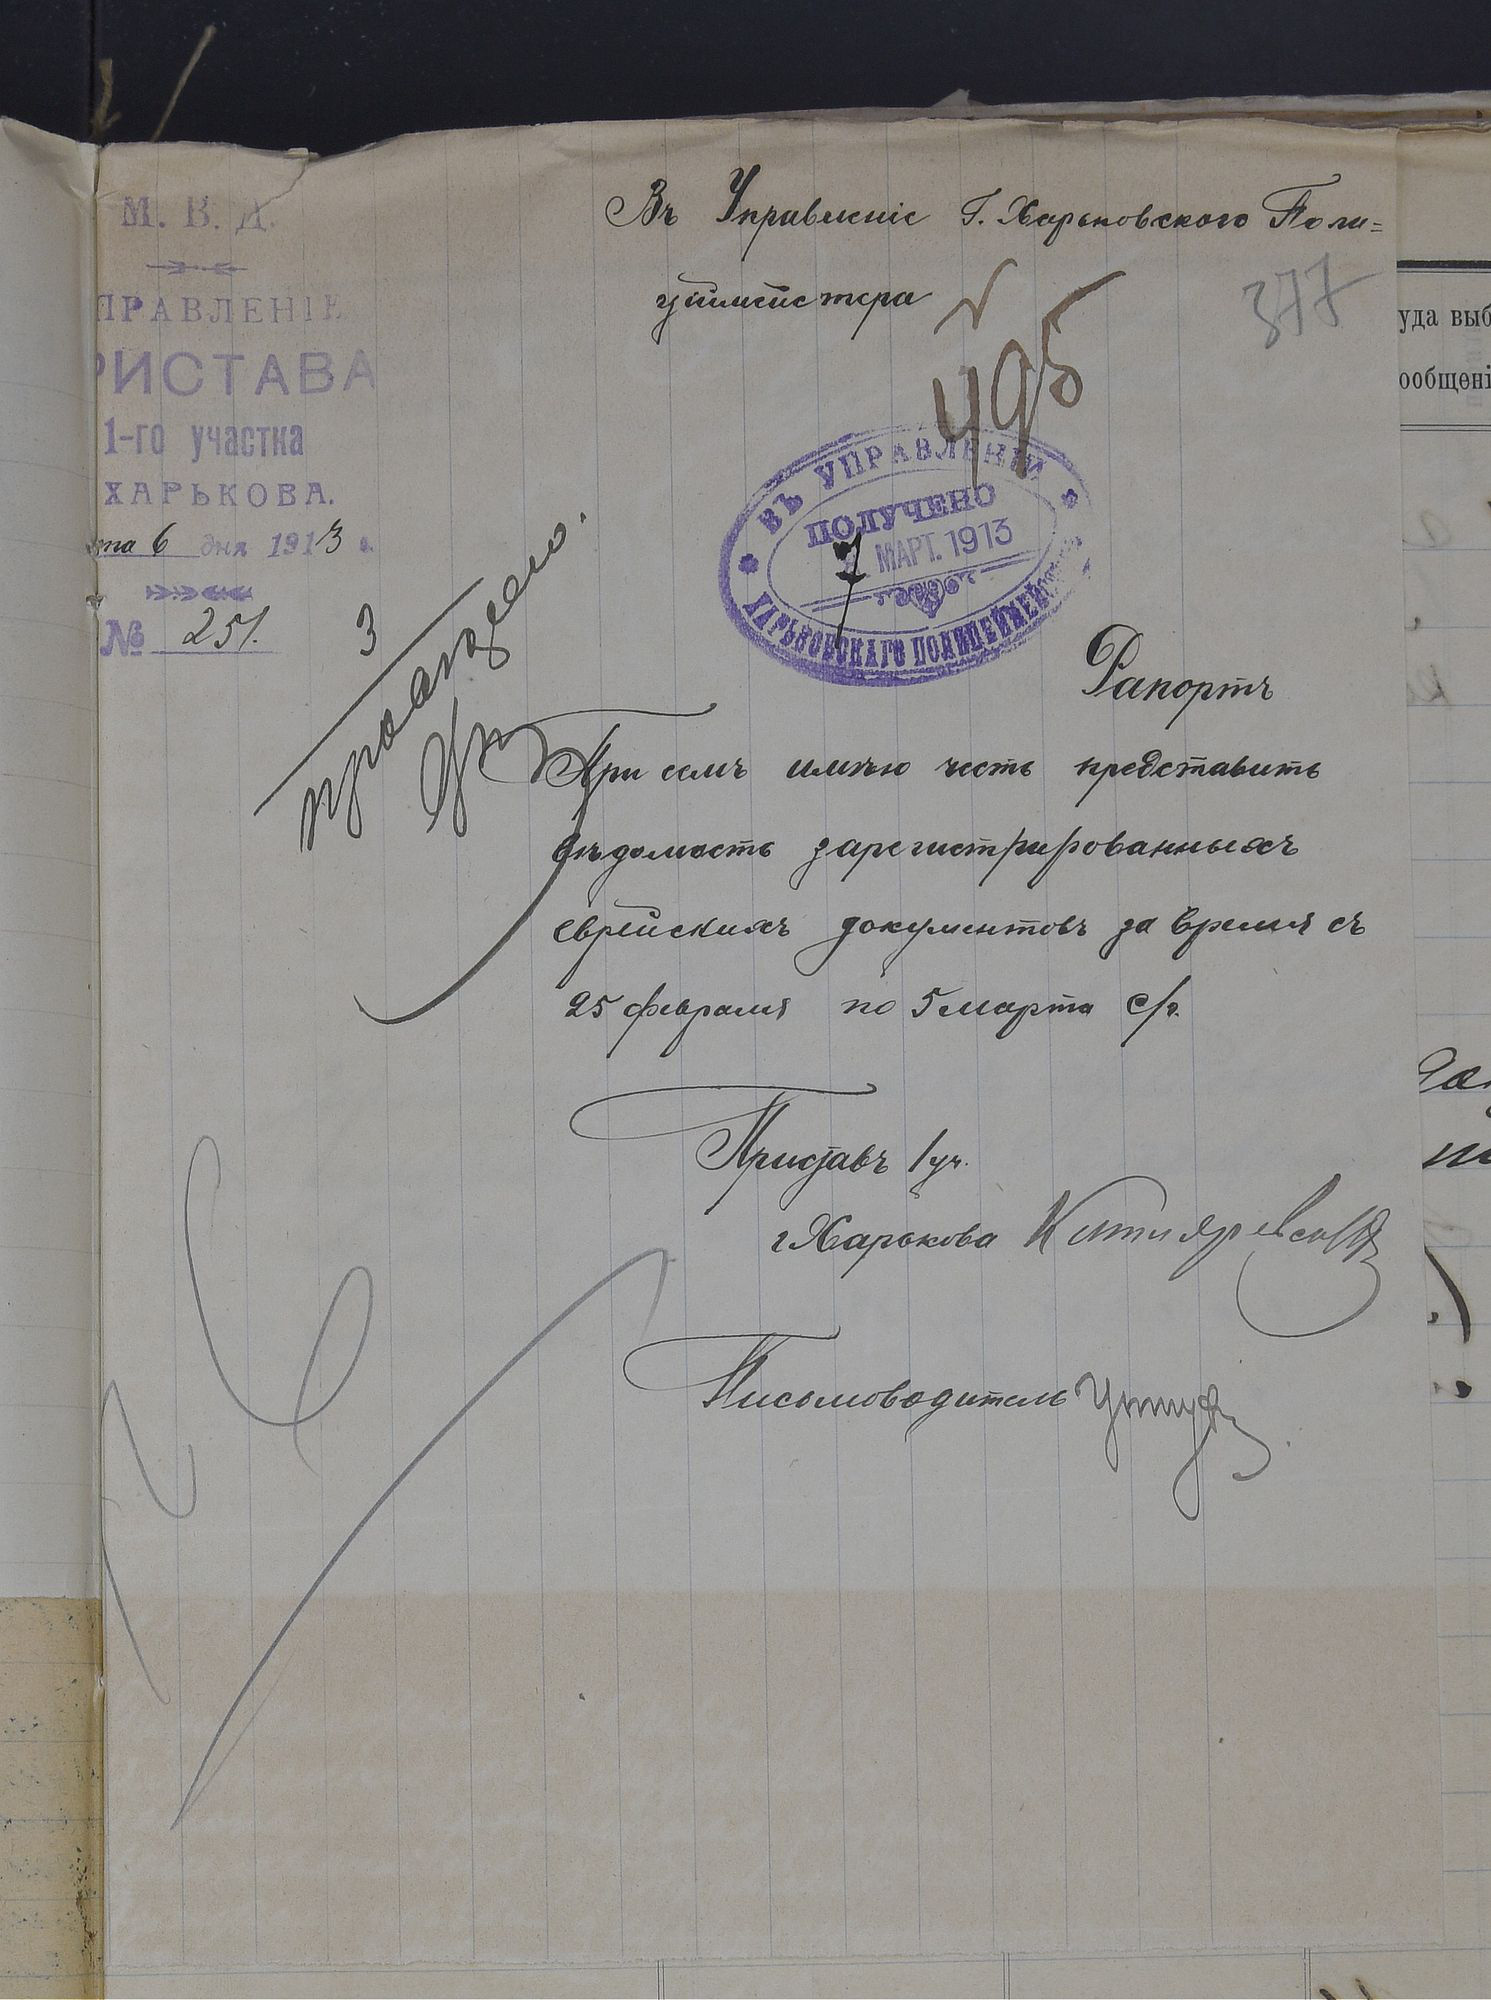 М. В. Д.
ПРАВЛЕНІЕ
РИСТАВА
1-го участка
ХАРЬКОВА.
та 6 дня 1913 г.
№ 251.
Въ Управленіе Г. Харьковскаго Поли=
цiймейстера
495
377
ВЪ УПРАВЛЕНІИ
ПОЛУЧЕНО
7 МАРТ. 1913
ХАРЬКОВСКАГО ПОЛИЦЕЙМЕЙС
3
Рапортъ
При семъ имѣю честь представить
вѣдомость зарегистрированныхъ
еврейскихъ документовъ за время съ
25 февраля по 5 марта с/г.
Приставъ 1 уч.
г. Харькова
Письмоводитель
уда выб
ообщені